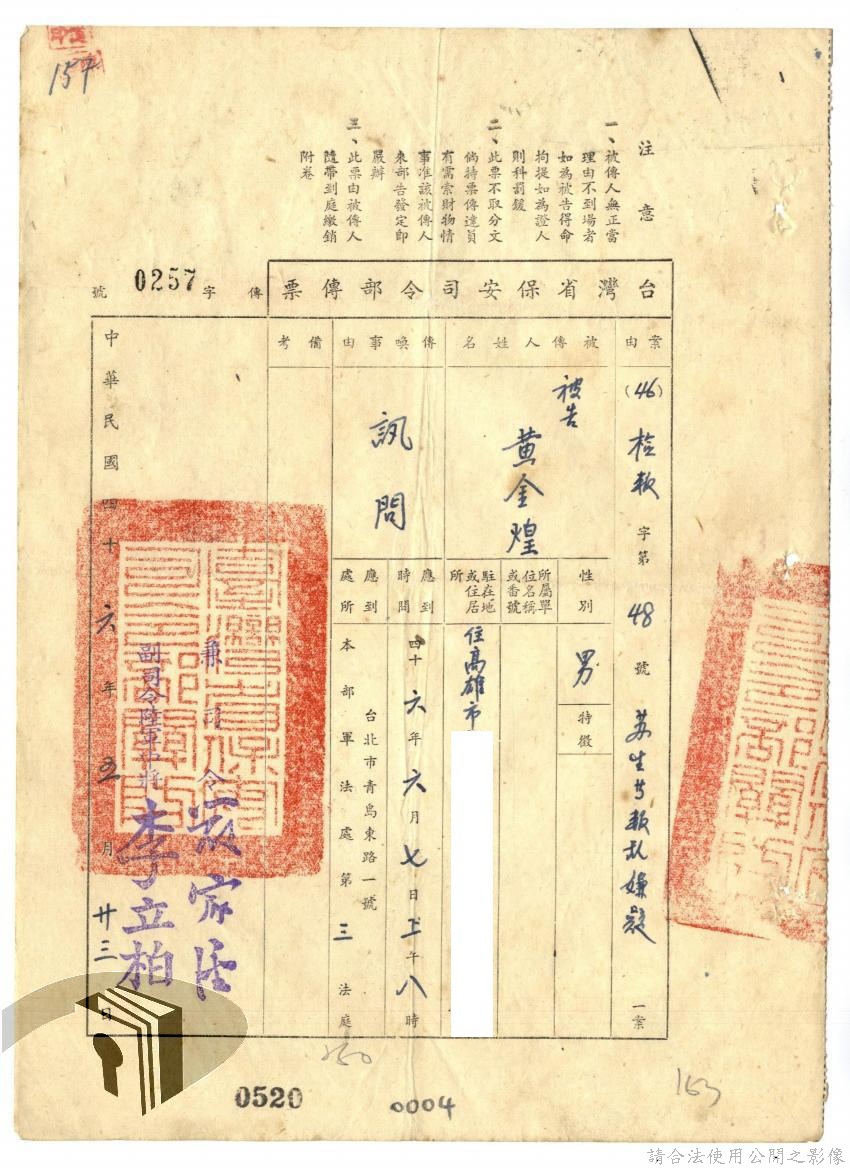 157
注意
一、被傳人無正當
理由不到場者
如為被告得命
拘提如為證人
則科罰鍰
二、此票不取分文
倘持票傳達員
有需索財物情
事准該被傳人
來部告發定即
嚴辦
三、此票由被傳人
隨帶到庭繳銷
附卷
台灣省保安司令部傳票
傳字0257號
案由
(46)檢
字第48號
嫌疑一案
被傳人姓名
被告
黄金煌
性別
男
特徵
所屬單
位名稱
或番號
駐在地
或住居
所
住高雄市
傳喚事由
訊問
應到
時間
四十六年六月七日上午八時
應到
處所
台北市青島東路一號
本部軍法處第三法庭
備考
兼司令
副司令陸軍中將李立柏
中華民國四十六年五月廿三日
0520
0004
250
163
請合法使用公開之影像